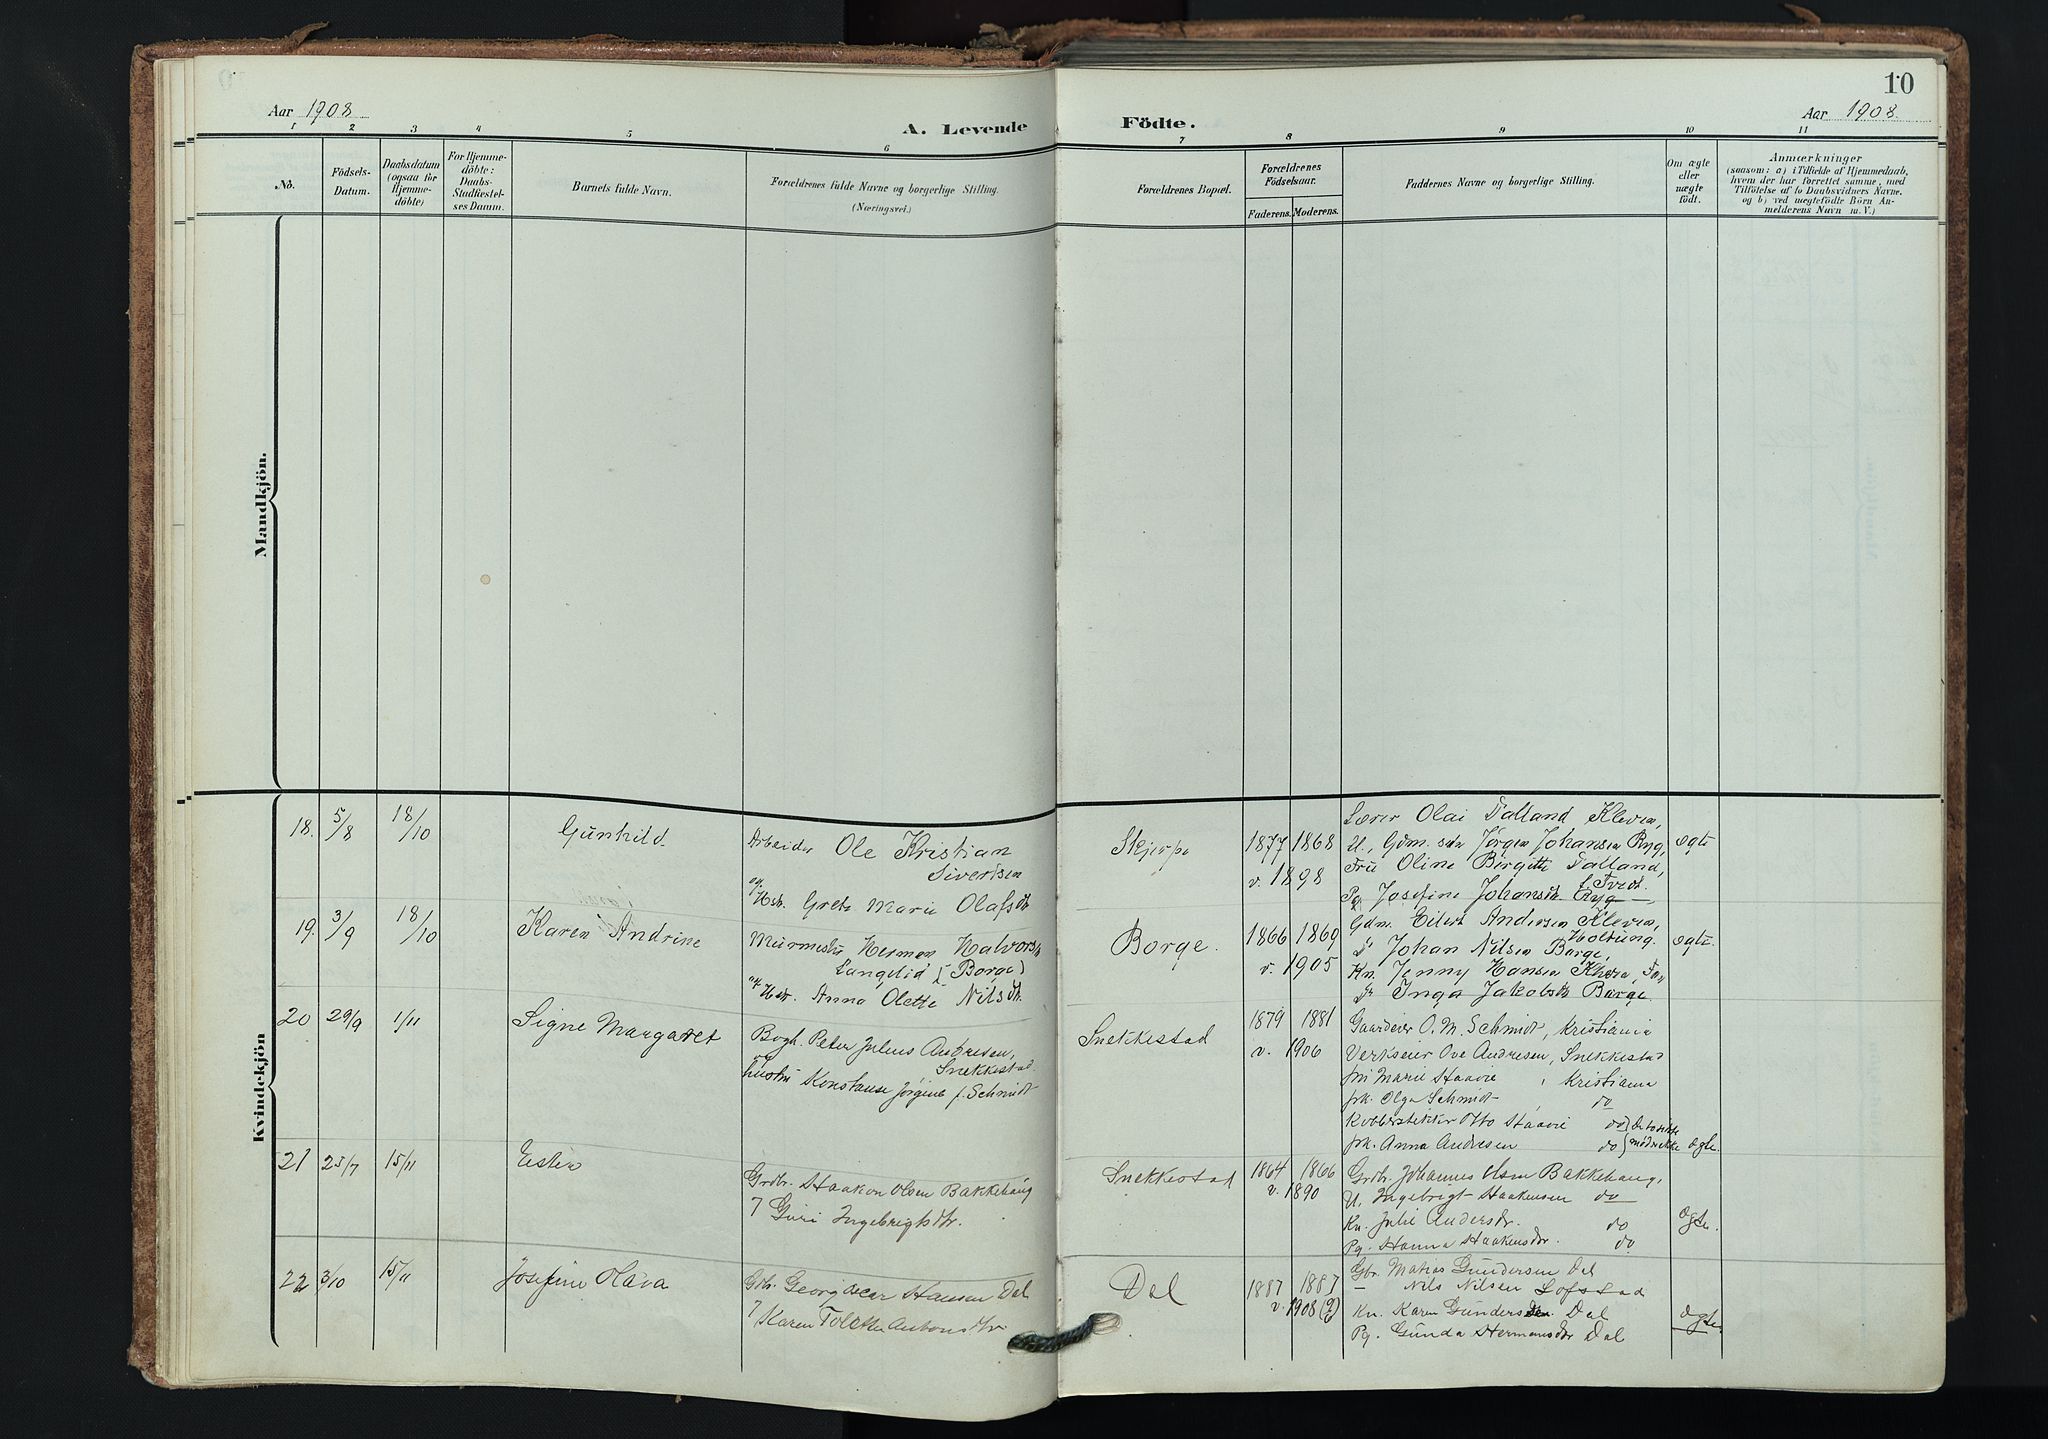 10
Aar 1908
A. Levende Födte.
Aar 1908.
1 2 3 4 5 6 7 8 9 10 11
No.
Födsels-
Datum.
Daabsdatum
(ogsaa for
Hjemme-
döbte)
For Hjemme-
döbte:
Daabs-
Stadfæstel-
ses Datum.
Barnets fulde Navn.
Forældrenes fulde Navne og borgerlige Stilling.
(Næringsvei.)
Forældrenes Bopæl.
Forældrenes
Födselsaar.
Faderens. Moderens.
Faddernes Navne og borgerlige Stilling.
Om ægte
eller
uægte
födt.
Anmærkninger
(saasom: a) i Tilfælde af Hjemmedaab,
hvem der har forrettet samme, med
Tilföielse af to Daabsvidners Navne.
og b) ved uægtefödte Börn An-
melderens Navn m. V.)
Mandkjön.
Kvindekjön
18. 5/8 18/10 Gunhild
Arbeider Ole Kristian
Sivertsen
og Hstr. Grete Marie Olafsdtr
Skjerpe
1877 1868
v. 1898
Lærer Olai Talland Kleven,
U., Gdm. søn Jørgen Johansen Ryg,
Fru Oline Borgitte Talland,
f. Tvedt.
Pg. Josefine Johansdtr. Ryg
ægte
19. 3/9 18/10 Karen Andrine
Murmester Herman Halvorsen
Langelid (Borge)
og Hstr. Anna Olette Nilsdtr.
Borge.
1866 1869
v. 1905
Gdm. Eilert Andersen Kleven,
Holtung.
Johan Nilsen Borge,
Kn. Jenny Hansen
Inga Jakobsdtr Borge.
ægte.
20 29/9 1/11 Signe Margaret
Bogh. Peter Julius Andresen,
Snekkestad
og hustru Konstanse Jørgine f. Schmidt
Snekkestad
1879 1881
v. 1906
Gaardeier O. M. Schmidt, Kristiania
Verkseier Ove Andresen, Snekkestad
fru Marie Staavie, Kristiania
frk. Olga Schmidt do
Kobberstikker Otto Staavie do
frk. Anna Andresen do
mødte ikke
ægte.
21 25/7 15/11 Ester
Grdbr. Haakon Olsen Bakkehaug
7 Guri Ingebrigtsdtr.
Snekkestad
1864 1866
v. 1890
Grdbr. Johannes Olsen Bakkehaug,
U. Ingebrigt Haakensen do
Kn. Julie Andersdr. do
Pg. Hanna Haakensdr. do
ægte.
22 3/10 15/11 Josefine Olava
Grbr. Georg Oscar Hansen Dal
7 Karen Tolette Antonsdtr
Dal
1887 1887
v. 1908 (?)
Gbr. Matias Gundersen Dal
— Nils Nilsen Lofstad
Kn. Karen Gundersen Dal
Pg. Gunda Hermansdtr Dal
ægte